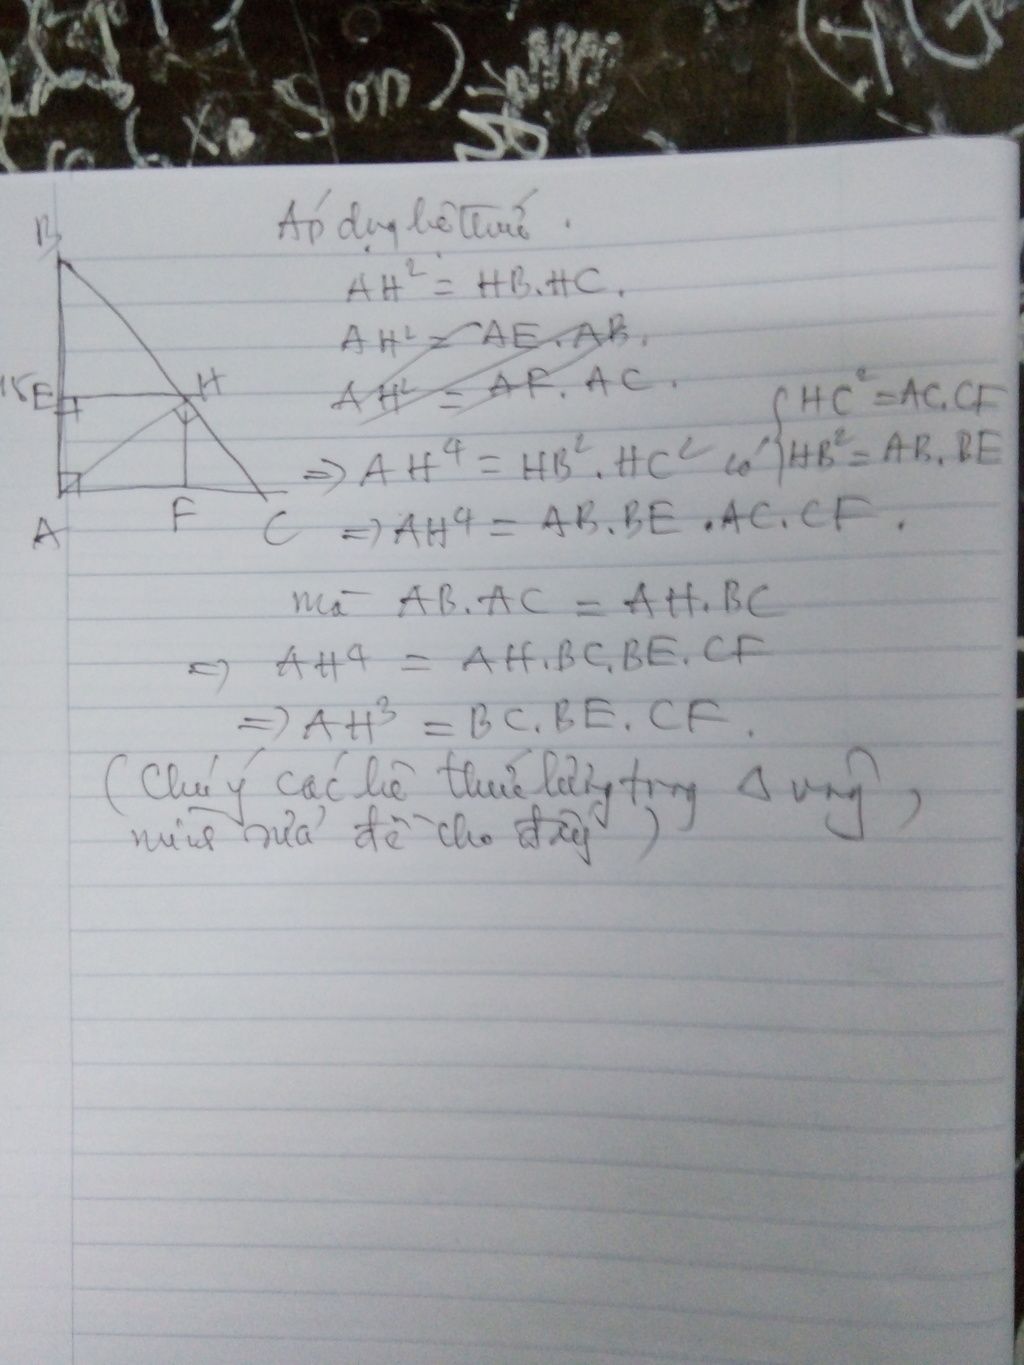 Sơn)
B
Áp dụng hệ thức.
AH² = HB.HC.
AH² = AE.AB.
AH² = AF.AC.
E H
HC² = AC.CF
⇒ AH⁴ = HB².HC² có HB² = AB.BE
A F C ⇒ AH⁴ = AB.BE.AC.CF.
mà AB.AC = AH.BC
⇒ AH⁴ = AH.BC.BE.CF
⇒ AH³ = BC.BE.CF.
(Chú ý các hệ thức lượng trong Δ vuông,
mình sửa đề cho đấy)